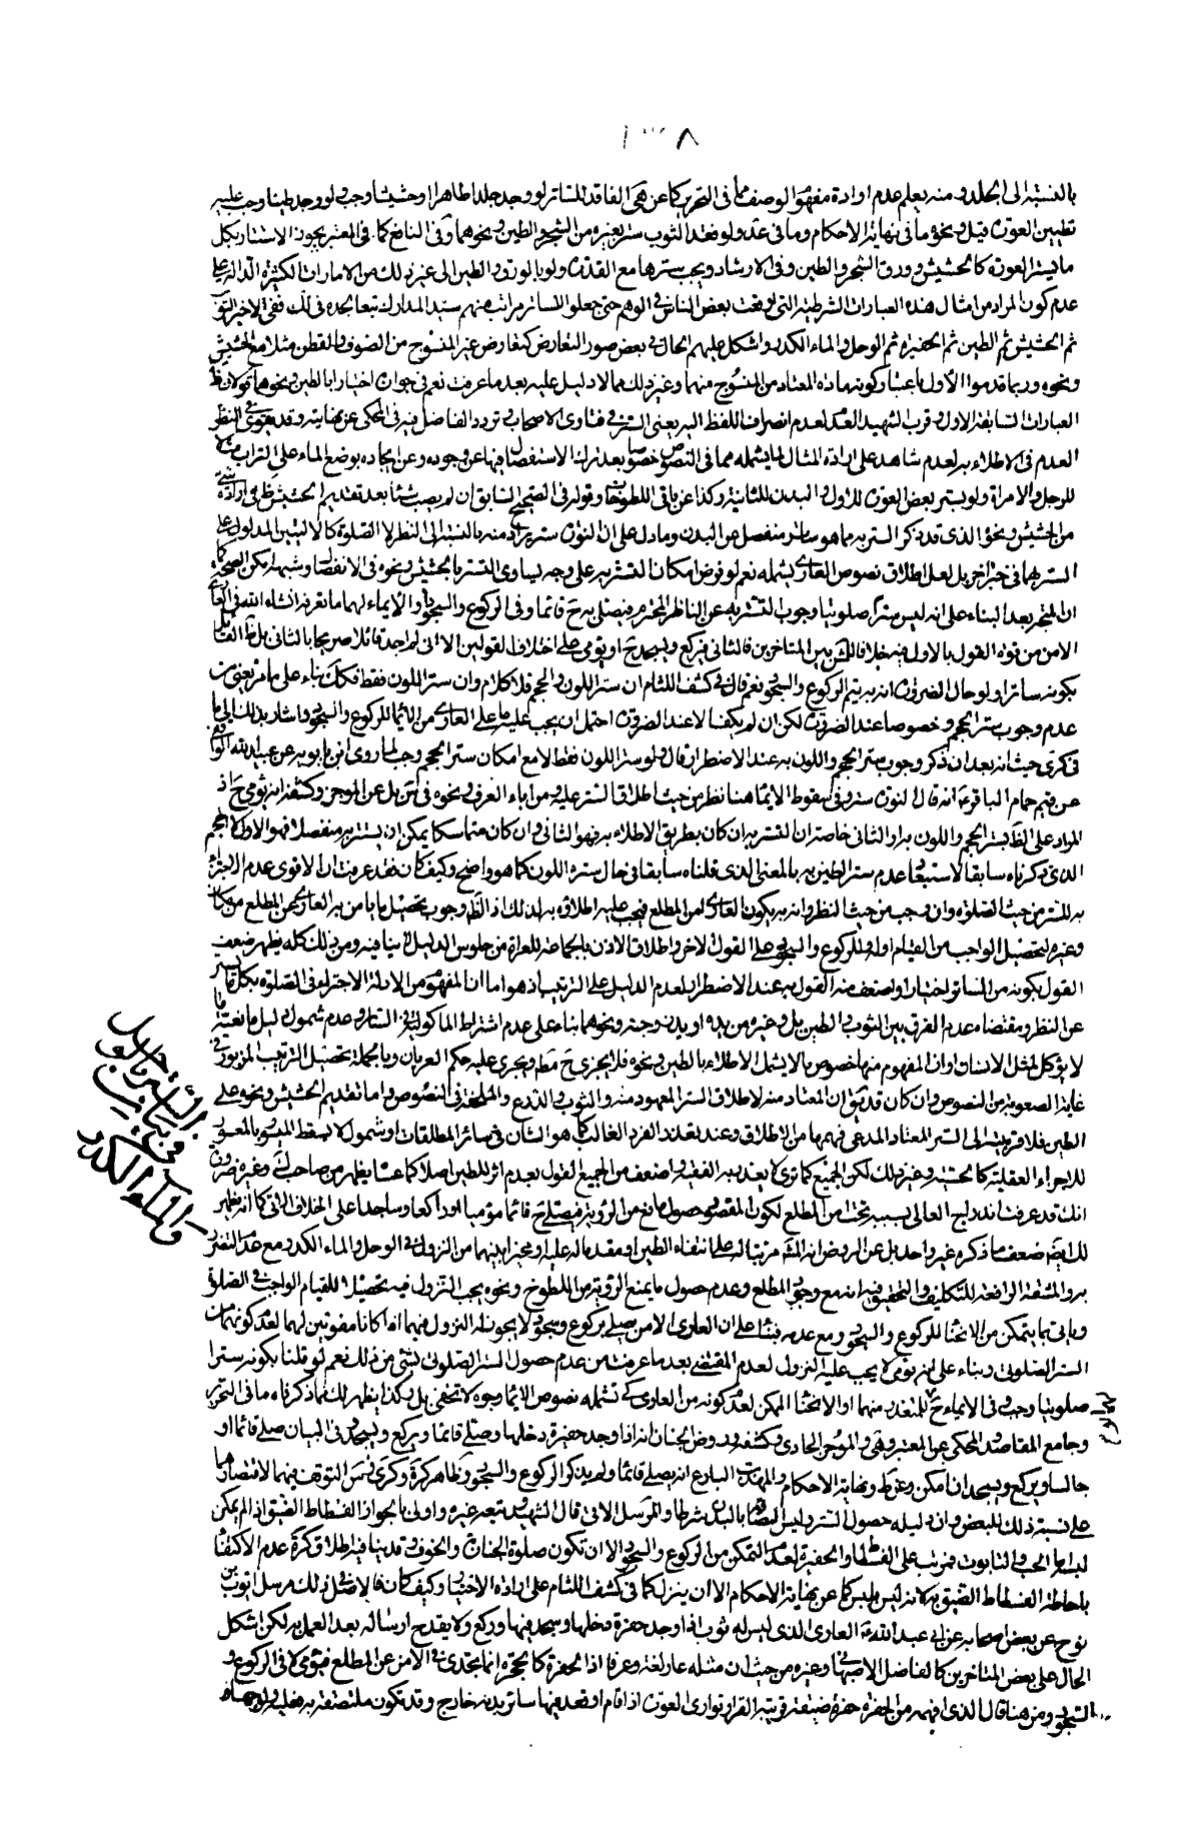 ١٣٨
بالنسبة الى الجلد و منه يعلم عدم ارادة مفهوم الوصف مما فى التحرير كما عن هى الفاقد للساتر لو وجد جلدا طاهرا او حشيشا وجب و لو وجد طينا وجب عليه
تطيين العورة قيل و نحوه ما فى نهاية الاحكام و ما فى عد و لو فقد الثوب ستر بغيره من الشجر و الطين و نحوهما و فى النافع كما فى المعتبر يجوز الاستتار بكل
ما يستر العورة كالحشيش و ورق الشجر و الطين و فى الارشاد و يجب سترها مع القدرة و لو بالورق و الطين الى غير ذلك من الامارات الكثيرة الدالة على
عدم كون المراد من امثال هذه العبارات الشرطية التى اوقعت بعض الناس فى الوهم حتى جعلوا الساتر مراتب منهم سيد المدارك تبعا لجده فى لك ففى الاخير الثوب
ثم الحشيش ثم الطين ثم الحفيرة ثم الوحل و الماء الكدر و اشكل عليهم الحال فى بعض صور التعارض كتعارض غير المنسوج من الصوف و القطن مثلا مع الحشيش
و نحوه و ربما قدموا الاول باعتبار كونه مادة المعتاد من المنسوج منهما و غير ذلك مما لا دليل عليه بعد ما عرفت نعم فى جواز اختيارا بالطين و نحوهما قولان
العبارات السابقة الاول و قرب الشهيد العدم لعدم انصراف اللفظ اليه يعنى الستر فى فتاوى الاصحاب و تردد الفاضل فيه فى المحكى عن نهايته و قد يقوى فى النظر
العدم فى الاطلاء به لعدم شاهد على ارادة المثال لما يشمله مما فى النصوص خصوصا بعد ترك الاستفصال فيها عن وجوده و عن ايجاده بوضع الماء على التراب مثلا
للرجل و الامراة و لو بستر بعض العورة للاول و البدن للثانية و كذا عن باقى اللطوخات و قوله فى الصحيح السابق ان لم يصب شيئا بعد تقديم الحشيش
من الحشيش و نحوه الذى قد ذكر الستر به ما هو ساتر منفصل عن البدن و ما دل على ان النورة ستر يراد منه بالنسبة الى النظر لا الصلوة
السترها فى خبر اخر بل لعل اطلاق نصوص العارى يشمله نعم لو فرض امكان التستر به على وجه يساوى التستر بالحشيش و نحوه فى الانفصال و شبهه
ان المتجه بعد البناء على انه ليس سترا صلوتيا وجوب التستر به عن الناظر المحترم فيصلى به ح قائما و فى الركوع و السجود الايماء لهما ما تعرفه انشاء الله فى العارى
الامن من قوة القول بالاول فيه خلافا بين المتاخرين فالثانى فيركع و يسجد ح او يومى على اختلاف القولين الا انى لم اجد قائلا صريحا بالثانى
بكونه ساترا و لو حال الضرورة انه به يتم الركوع و السجود نعم قال فى كشف اللثام ان ستر اللون و الحجم فلا كلام و ان ستر اللون فقط فكك بناء على ما مر
عدم وجوب ستر الحجم و خصوصا عند الضرورة لكن ان لم يكف الا عند الضرورة احتمل ان يجب عليه ما على العارى من الايماء للركوع و السجود و اشار بذلك الى ما
فى كرى حيث انه بعد ان ذكر وجوب ستر الحجم و اللون به عند الاضطرار قال و لو ستر اللون فقط لا مع امكان ستر الحجم وجب لما روى ابن بابويه عن عبيد الله
عن قيم حمام الباقر ع انه قال النورة سترة و فى سقوط الايماء هنا نظر من حيث اطلاق الستر عليه و من اباء العرف و نحوه
المراد على الظ بستر الحجم و اللون به ارادة الثانى خاصة ان التستر به ان كان بطريق الاطلاء به فهو الثانى و ان كان متماسكا يمكن ان يستتر به منفصلا فهو الاول
الذى ذكرناه سابقا لاستبعاد عدم ستر الطين به بالمعنى الذى قلناه سابقا فى حال ستره اللون كما هو واضح و كيف كان فقد عرفت ان الاقوى عدم الاجتزاء
به للستر من حيث الصلوة و ان وجب من حيث النظر و انه به يكون العارى امن المطلع فيجب عليه اطلاؤه به لذلك اذ الظ وجوب تحصيل ما يامن به العارى عن المطلع من مكان
و غيره لتحصيل الواجب من القيام او له و للركوع و السجود على القول الاخر و اطلاق الاذن بالجماعة للعراة من جلوس لدليل لا ينافيه و من ذلك كله يظهر ضعف
القول بكونه من الساتر اختيارا و اضعف منه القول به عند الاضطرار لعدم الدليل على الترتيب اذ هو اما ان المفهوم من الادلة الاجتزاء فى الصلوة بكل ما يستر
عن النظر و مقتضاه عدم الفرق بين الثوب و الطين بل و غيره من يده او يد زوجته و نحوهما بناء على عدم اشتراط الماكولية فى الستار و عدم شمول دليل مانعية ما
لا يؤكل لمثل الانسان او ان المفهوم منها خصوص ما لا يشمل الاطلاء بالطين و نحوه فلا يجزى ح مطلقا و يجرى عليه حكم العريان و بالجملة تحصيل الترتيب المزبور فى
غاية الصعوبة من النصوص و ان كان قد يق ان المعتاد منه لاطلاق الستر المعهود منه و الثوب و الدرع و الملحفة فى النصوص و اما تقديم الحشيش و نحوه على
الطين فلاقربيته الى الستر المعتاد المدعى فهمها من الاطلاق و عند تعذر الفرد الغالب كما هو الشان فى سائر المطلقات او شمول لا يسقط الميسور بالمعسور
للاجزاء العقلية كالحشيش و غير ذلك لكن الجميع كما ترى لا يعتد به الفقيه و اضعف من الجميع القول بعدم اثر للطين اصلا كما عساه يظهر من صاحب لك و غيره ضرورة
انك قد عرفت اندراج العارى بسببه تحت امن المطلع لكون المقصود حصول مانع من الرؤية فيصلى ح قائما موميا او راكعا و ساجدا على الخلاف الاتى كما انه يظهر
لك ايضا ضعف ما ذكره غير واحد بل عن الروض انه المشهور مرتبا له على انتفاء الطين او مقدما له عليه او مخيرا بينهما من النزول فى الوحل و الماء الكدر مع عدم التضرر
به و المشقة الرافعة للتكليف و التحقيق فيه انه مع وجود المطلع و عدم حصول ما يمنع الرؤية من اللطوخ و نحوه يجب النزول فيه تحصيلا للقيام الواجب فى الصلوة
و ياتى بما يتمكن من الانحناء للركوع و السجود و مع عدمه فبناء على ان العارى الامن يصلى بركوع و سجود لا يجوز له النزول فيهما اذا كانا مفوتين لهما لعدم كونهما من
الستر الصلوتى و بناء على انه يومى لا يجب عليه النزول لعدم المقتضى بعد ما عرفت من عدم حصول الستر الصلوتى بشئ من ذلك نعم لو قلنا بكونه سترا
صلوتيا وجب و فى الايماء ح للمتعذر منهما او الانحناء الممكن لعدم كونه من العارى كى تشمله نصوص الايماء وجوه لا تخفى بل و كذا يظهر لك مما ذكرناه ما فى التحرير
و جامع المقاصد و المحكى عن المعتبر و هى و الموجز الحاوى و كشفه و روض الجنان انه اذا وجد حفيرة دخلها و صلى قائما و يركع و يسجد و فى البيان صلى قائما او
جالسا و يركع و يسجد ان امكن و عن ط و نهاية الاحكام و المهذب البارع انه يصلى قائما و لم يذكروا الركوع و السجود و ظاهر كره و كرى نفس التوقف فيهما لاقتصارهما
على نسبة ذلك للبعض و ان دليله حصول الستر و ليس التصاقه بالبدن شرطا و المرسل الاتى قال الشهيد و تبعه غيره و اولى بالجواز الفسطاط الضيق اذا لم يمكن
لبسه اما الحب و التابوت فمرتب على الفسطاط و الحفيرة لعدم التمكن من الركوع و السجود الا ان تكون صلوة الجنازة و الخوف و قد ينافيه اطلاق كره عدم الاكتفاء
باحاطة الفسطاط الضيق به لانه ليس بلبس كما عن نهاية الاحكام الا ان ينزل كما فى كشف اللثام على ارادة الاختيار و كيف كان فالاصل فى ذلك مرسل ايوب بن
نوح عن بعض اصحابه عن ابى عبد الله ع العارى الذى ليس له ثوب اذا وجد حفرة دخلها و سجد فيها و ركع و لا يقدح ارساله بعد العمل به لكن اشكل
الحال على بعض المتاخرين كالفاضل الاصبهانى و غيره من حيث ان مثله عار لغة و عرفا اذ الحفرة كالحجرة انما تجدى فى الامن عن المطلع فيومى لا فى الركوع و
السجود و من هنا قال الذى افهمه من الحفرة حفرة ضيقة قريبة القرار توارى العورة اذا قام او قعد فيها ساتر بدنه خارج و قد تكون ملتصقة به
التستر بالوحل
و الماء الكدر